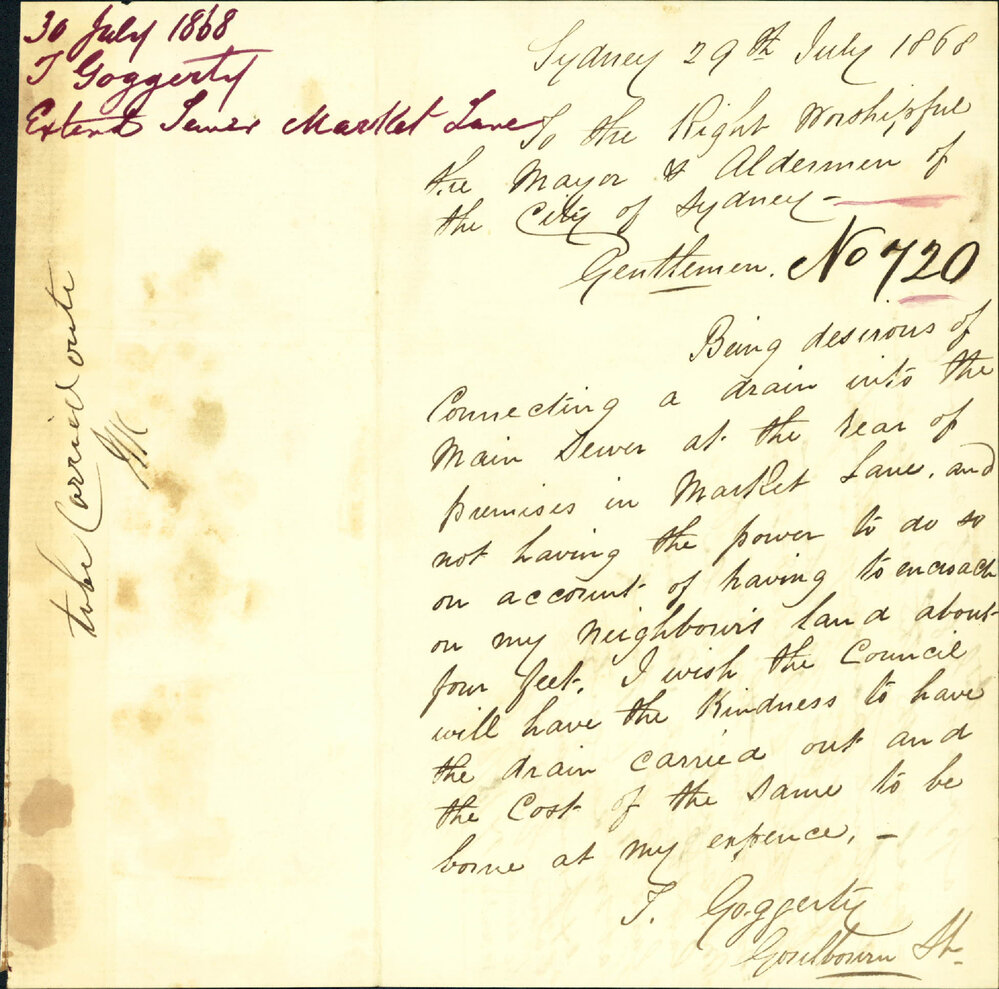 30 July 1868
T Goggerty
Extend Sewer Market Lane
Sydney 29th July 1868
To the Right Worshipful
the Mayor & Aldermen of
the City of Sydney -
Gentlemen. No 720
Being desirous of
Connecting a drain into the
Main Sewer at the rear of
premises in Market Lane, and
not having the power to do so
on account of having to encroach
on my neighbours land about
four feet. I wish the Council
will have the kindness to have
the drain carried out and
the Cost of the same to be
borne at my expence. -
T. Goggerty
Goulbourn St-
to be Carried oute